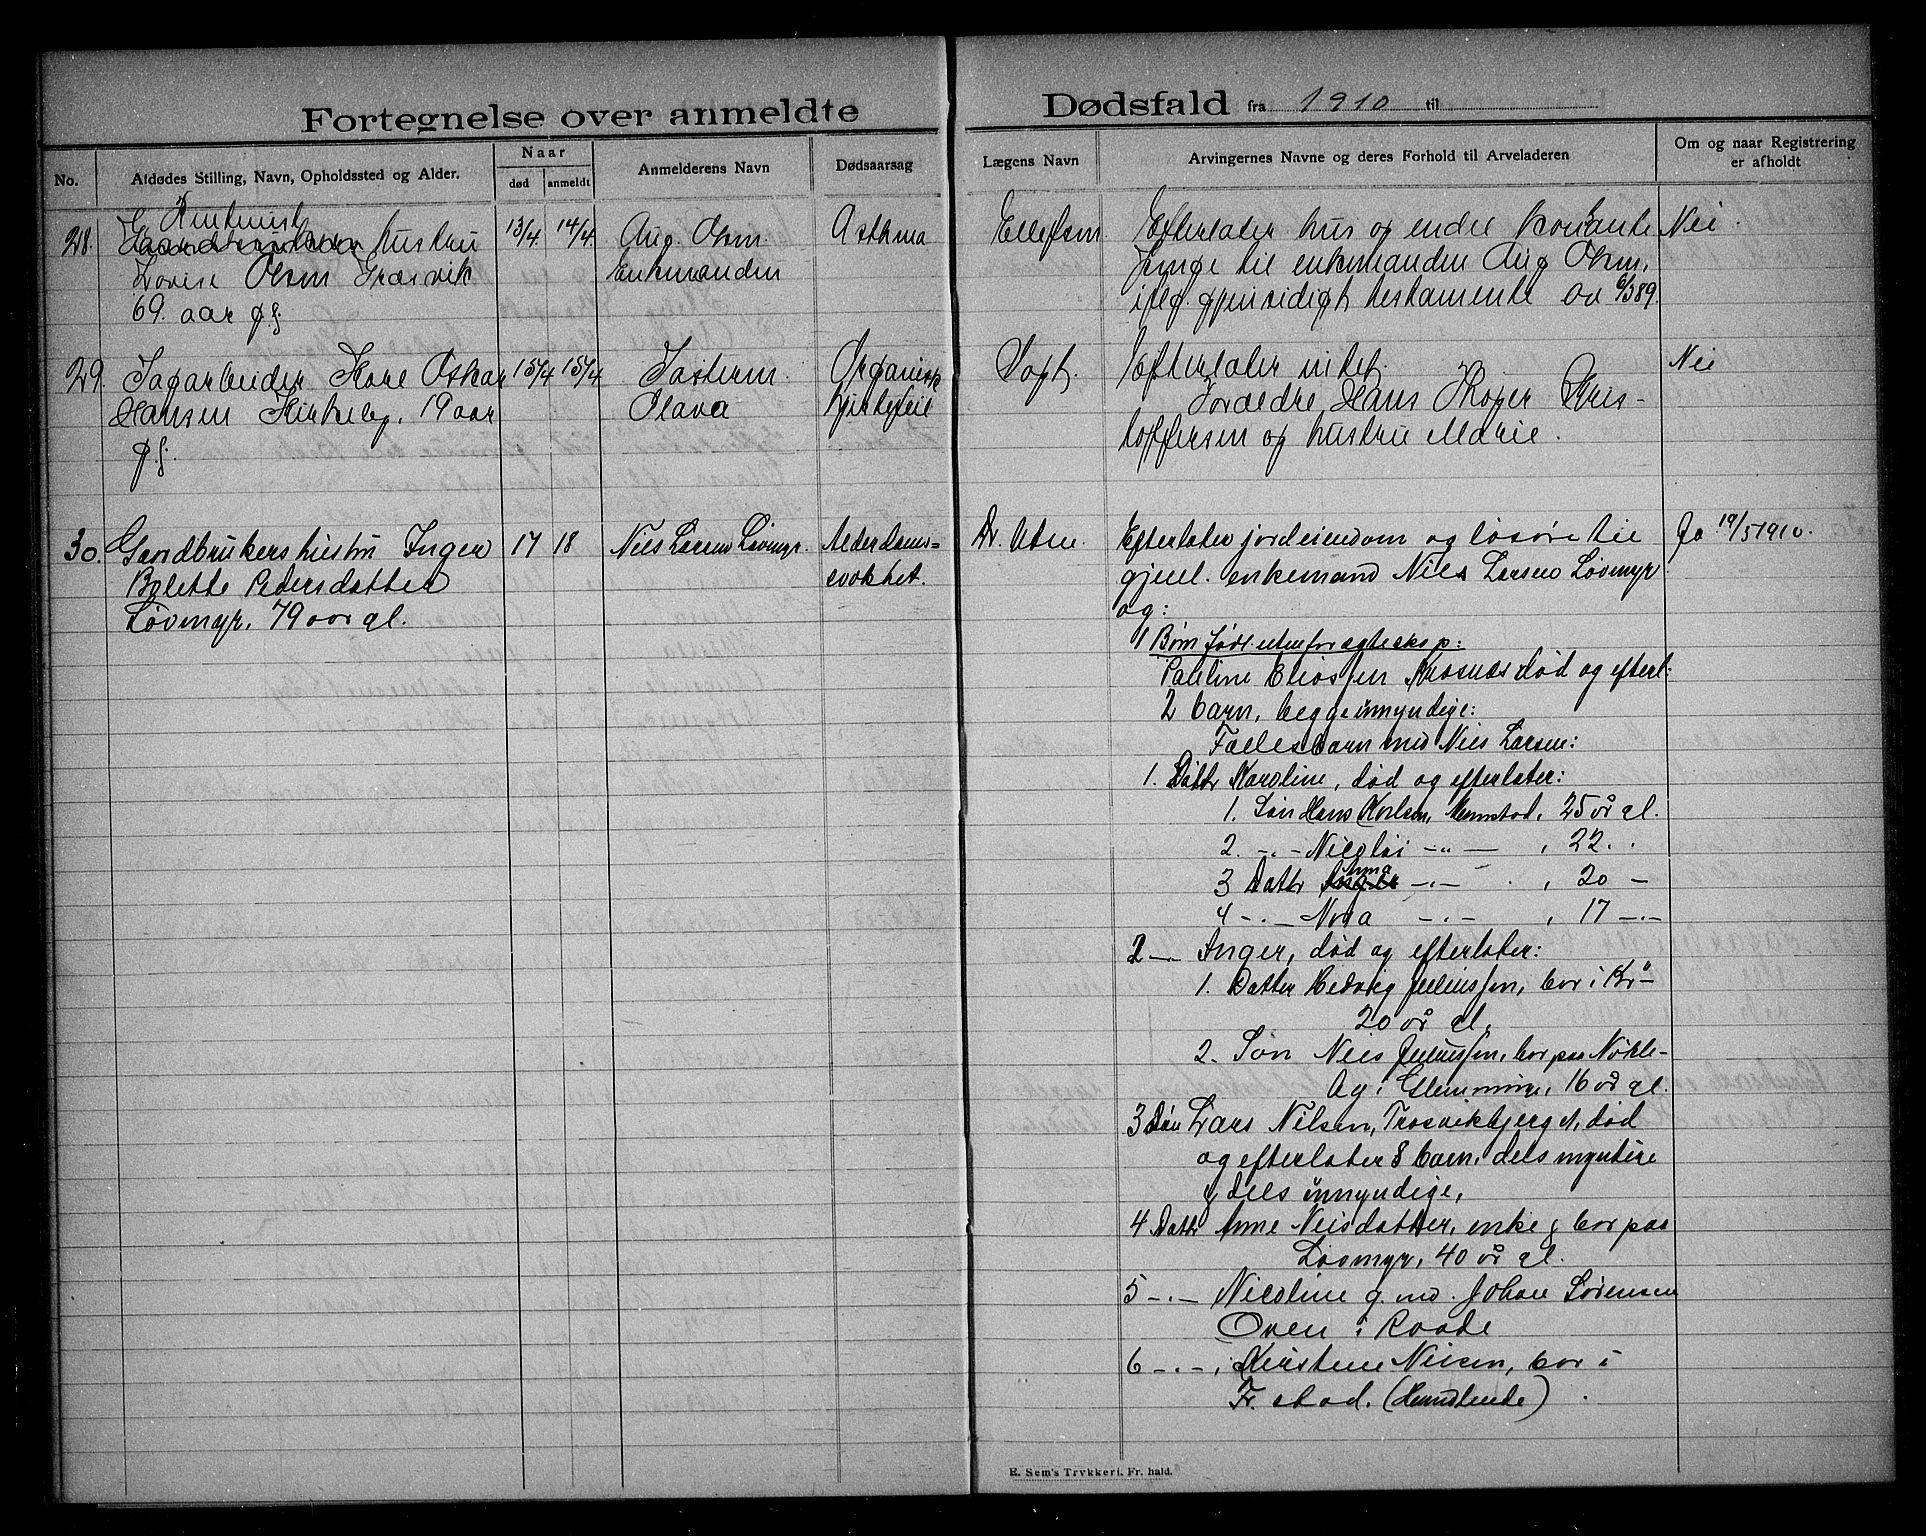 Fortegnelse over anmeldte Dødsfald fra 1910 til
No.
Afdødes Stilling, Navn, Opholdssted og Alder.
Naar
død
anmeldt
Anmelderens Navn
Dødsaarsag
Lægens Navn
Arvingernes Navne og deres Forhold til Arveladeren
Om og naar Registrering
er afholdt
28.
hustru
Lovise Olsen Græsvik
69 aar gl.
13/4
14/4
Aug. Olsen
Enkemanden
Asthma
Ellefsen
Efterlater hus og endel kontante
penge til enkemanden Aug Olsen,
iflg. gjensidigt testamente av 6/3 89.
Nei
29.
Sagarbeider Kare Oskar
Hansen Kirkeby, 19 aar
gl.
15/4
15/4
Søsteren
Olava
Organisk
hjertefeil
Sopt.
Efterlater intet.
Foræeldre Hans Roger Kris-
toffersen og hustru Marie.
Nei
30.
Gaardbrukers hustru Inger
Bolette Pedersdatter
Løvmyr, 79 aar gl.
17
18
Niels Larsen Løvmyr.
Alderdoms=
svakhet.
Dr.
Efterlater jordeiendom og løsøre til
gjenl. enkemand Niels Larsen Løvmyr
og:
1 Børn født utenfor ægteskap:
Pauline Eliassen død og efterl.
2 barn, begge umyndige:
Fællesbarn med Niels Larsen:
1. Dattr Karoline, død og efterlater:
1. Søn Hans Karlsen, 25 år gl.
2. -"- Nicolai -"- , 22. "
3 Dattr Anna -"- , 20 -
4 -"- Nora -"- , 17 -"-
2 -"- Inger, død og efterlater:
1. Datter Hedvig Juliussen, bor i Kr.a
20 år gl,
2. Søn Niels Juliussen, bor paa Nøkle-
by i Glemminge, 16 år gl.
3 Søn Lars Nilsen, Trosvikbjerget, død
og efterlater 8 barn, dels myndige
og dels umyndige,
4 Dattr Anne Nilsdatter, enke og bor paa
Løvmyr, 40 år gl.
5 -"- Nicoline g. m. Johan Sørensen
Oven i Raade
6 -"- , Kristine Nilsen, bor i
Fr. stad. (Hemmelende)
E. Sem's Trykkeri, Fr. hald.